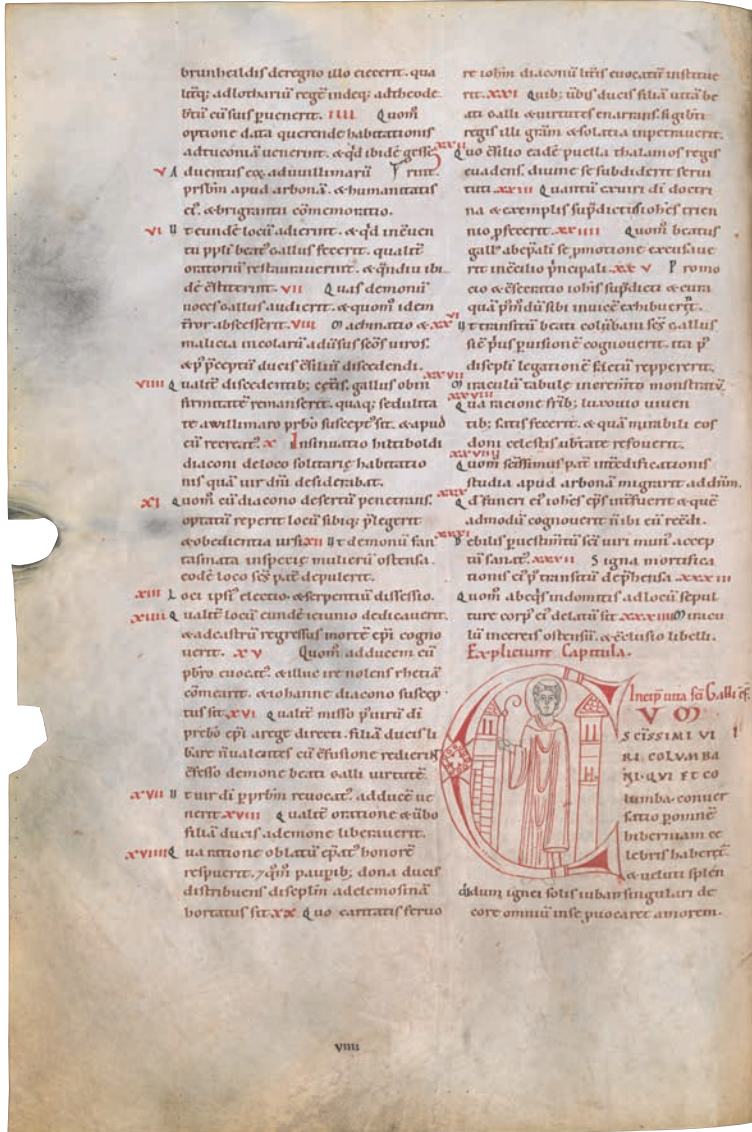 brunheildis de regno illo eiecerit. qua
litẽq; ad lothariũ regẽ indeq; ad theode
bertũ cũ suis puenerit. IIII Quom̃
optione data querende habitationis
ad tuconiã uenerint. & qd ibidẽ gesse
V Aduentus eoꝝ ad uuillimarũ rint.
prsbm apud arbonã. & humanitatis
ei'. & brigantii cõmemoratio.
VI Ut eundẽ locũ adierint. & qd inẽuen
tu ppli beat' Gallus fecerit. qualit̃
oratoriũ restaurauerint. & qndiu ibi
dẽ stiterint. VII Quas demonũ
uoces Gallus audierit. & quom̃ idem
error abscesserit. VIII Machinatio &
malicia incolarũ aduersus scõs uiros.
& p pceptũ ducis csiliũ discedendi.
VIIII Qualit̃ discedentib; cet̃is. gallus ob in
firmitatẽ remanserit. quaq; sedulita
te a willimaro prbo suscept' sit. & apud
eũ recreat'. X Insinuatio hiltiboldi
diaconi de loco solitarię habitatio
nis quã uir dñi desiderabat.
XI Quom̃ cũ diacono desertũ penetrans.
optatũ reperit locũ sibiq; p̱legerit
& obedientia ursi XII Ut demonũ fan
tasmata in specie mulierũ ostensa.
eodẽ loco scs pat̃ depulerit.
XIII Loci ipsi' electio. & serpentiũ discessio.
XIIII Qualit̃ locũ eundẽ ieiunio dedicauerit.
& ad castrũ regressus mortẽ epi cogno
uerit. XV Quom̃ ad ducem cũ
pbro euocat'. & illuc ire nolens rhetiã
cõmearit. & iohanne diacono suscep
tus sit. XVI Qualit̃ misso p uirũ di
prebo epi a rege directi. filiã ducis li
bare ñ ualentes cũ cfusione redierint
cfesso demone beati Galli uirtutẽ.
XVII Ut uir di p prbm reuocat'. ad ducẽ ue
nerit. XVIII Qualit̃ oratione & ũbo
filiã ducis a demone liberauerit.
XVIIII Qua ratione oblatũ epat' honorẽ
respuerit. ⁊ qm̃ paupib; dona ducis
distribuens discplm ad elemosinã
hortatus sit. XX Quo caritatis feruo
re iohm diaconũ lit̃is euocatũ institue
rit. XXI Quib; ũbis ducis filia uitã be
ati Galli & uirtutes enarrans. sigibti
regis illi grãm & solatia inpetrauerit.
XXII Quo csilio eadẽ puella thalamos regis
euadens. diuine se subdiderit serui
tuti. XXIII Quantũ exuiri di doctri
na & exemplis supdictus iohes trien
nio pfecerit. XXIIII Quom̃ beatus
gall' ab epali se pmotione excusaue
rit in ccilio p̃ncipali. XXV Promo
cio & csecratio iohis supdicti & cura
quã pm̃dũ sibi inuicẽ exhibuerint.
XXVI Ut transitũ beati colũbani scs Gallus
sic p̃us puisionẽ cognouerit. ita p'
discpli legationẽ cletũ reppererit.
XXVII Miraculũ tabule in cremto monstratũ.
XXVIII Qua racione frib; luxouio uiuen
tib; satis fecerit. & quã mirabili eos
doni celestis ubtate refouerit.
XXVIIII Quom̃ scissimus pat̃ int̃ edificationis
studia apud arbonã migrarit ad dñm.
XXX Qd funeri ei' iohes eps int̃fuerit & quẽ
admodũ cognouerit ñ ibi eũ recdi.
XXXI Debilis p uestimtũ sci uiri mun' accep
tũ sanat'. XXXII Signa mortifica
tionis ei' p' transitũ deprhensa. XXXIII
Quom̃ ab eqis indomitis ad locũ sepul
ture corp' ei' delatũ sit. XXXIIII Miracu
lũ in cereis ostensũ. & cclusio libelli.
Expliciunt Capitula.
Incip uita sci Galli cf.
VM
SCISSIMI VI
RI COLVMBA
NI. QVI ET CO
lumba. conuer
satio p omnẽ
hiberniam ce
lebris haberet.
& ueluti splen
didum ignei solis iubar singulari de
core omniũ in se puocaret amorem.
VIIII